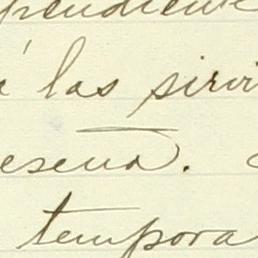 pendiente
á las sirvi
eseña.
tempora